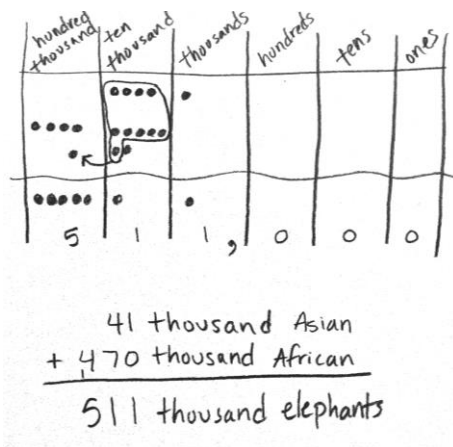 hundred thousand ten thousand thousands hundreds tens ones
5 1 1, 0 0 0
41 thousand Asian
+ 470 thousand African
1
511 thousand elephants